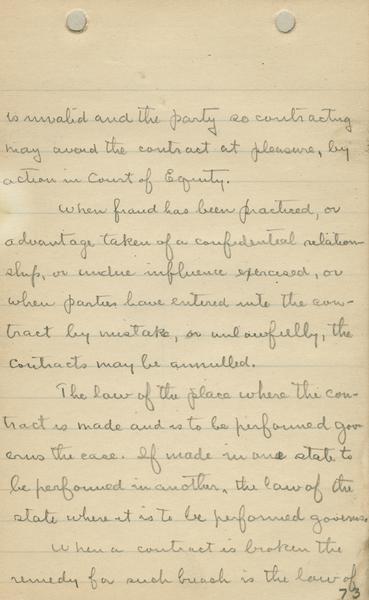 is invalid and the party so contracting
may avoid the contract at pleasure, by
action in Court of Equity.
When fraud has been practiced, or
advantage taken of a confidential relation-
ship, or undue influence exercised, or
when parties have entered into the con-
tract by mistake, or unlawfully, the
contracts may be annulled.
The law of the place where the con-
tract is made and is to be performed gov-
erns the case. If made in one state to
be performed in another, the law of the
state where it is to be performed governs.
When a contract is broken the
remedy for such breach is the law of
73